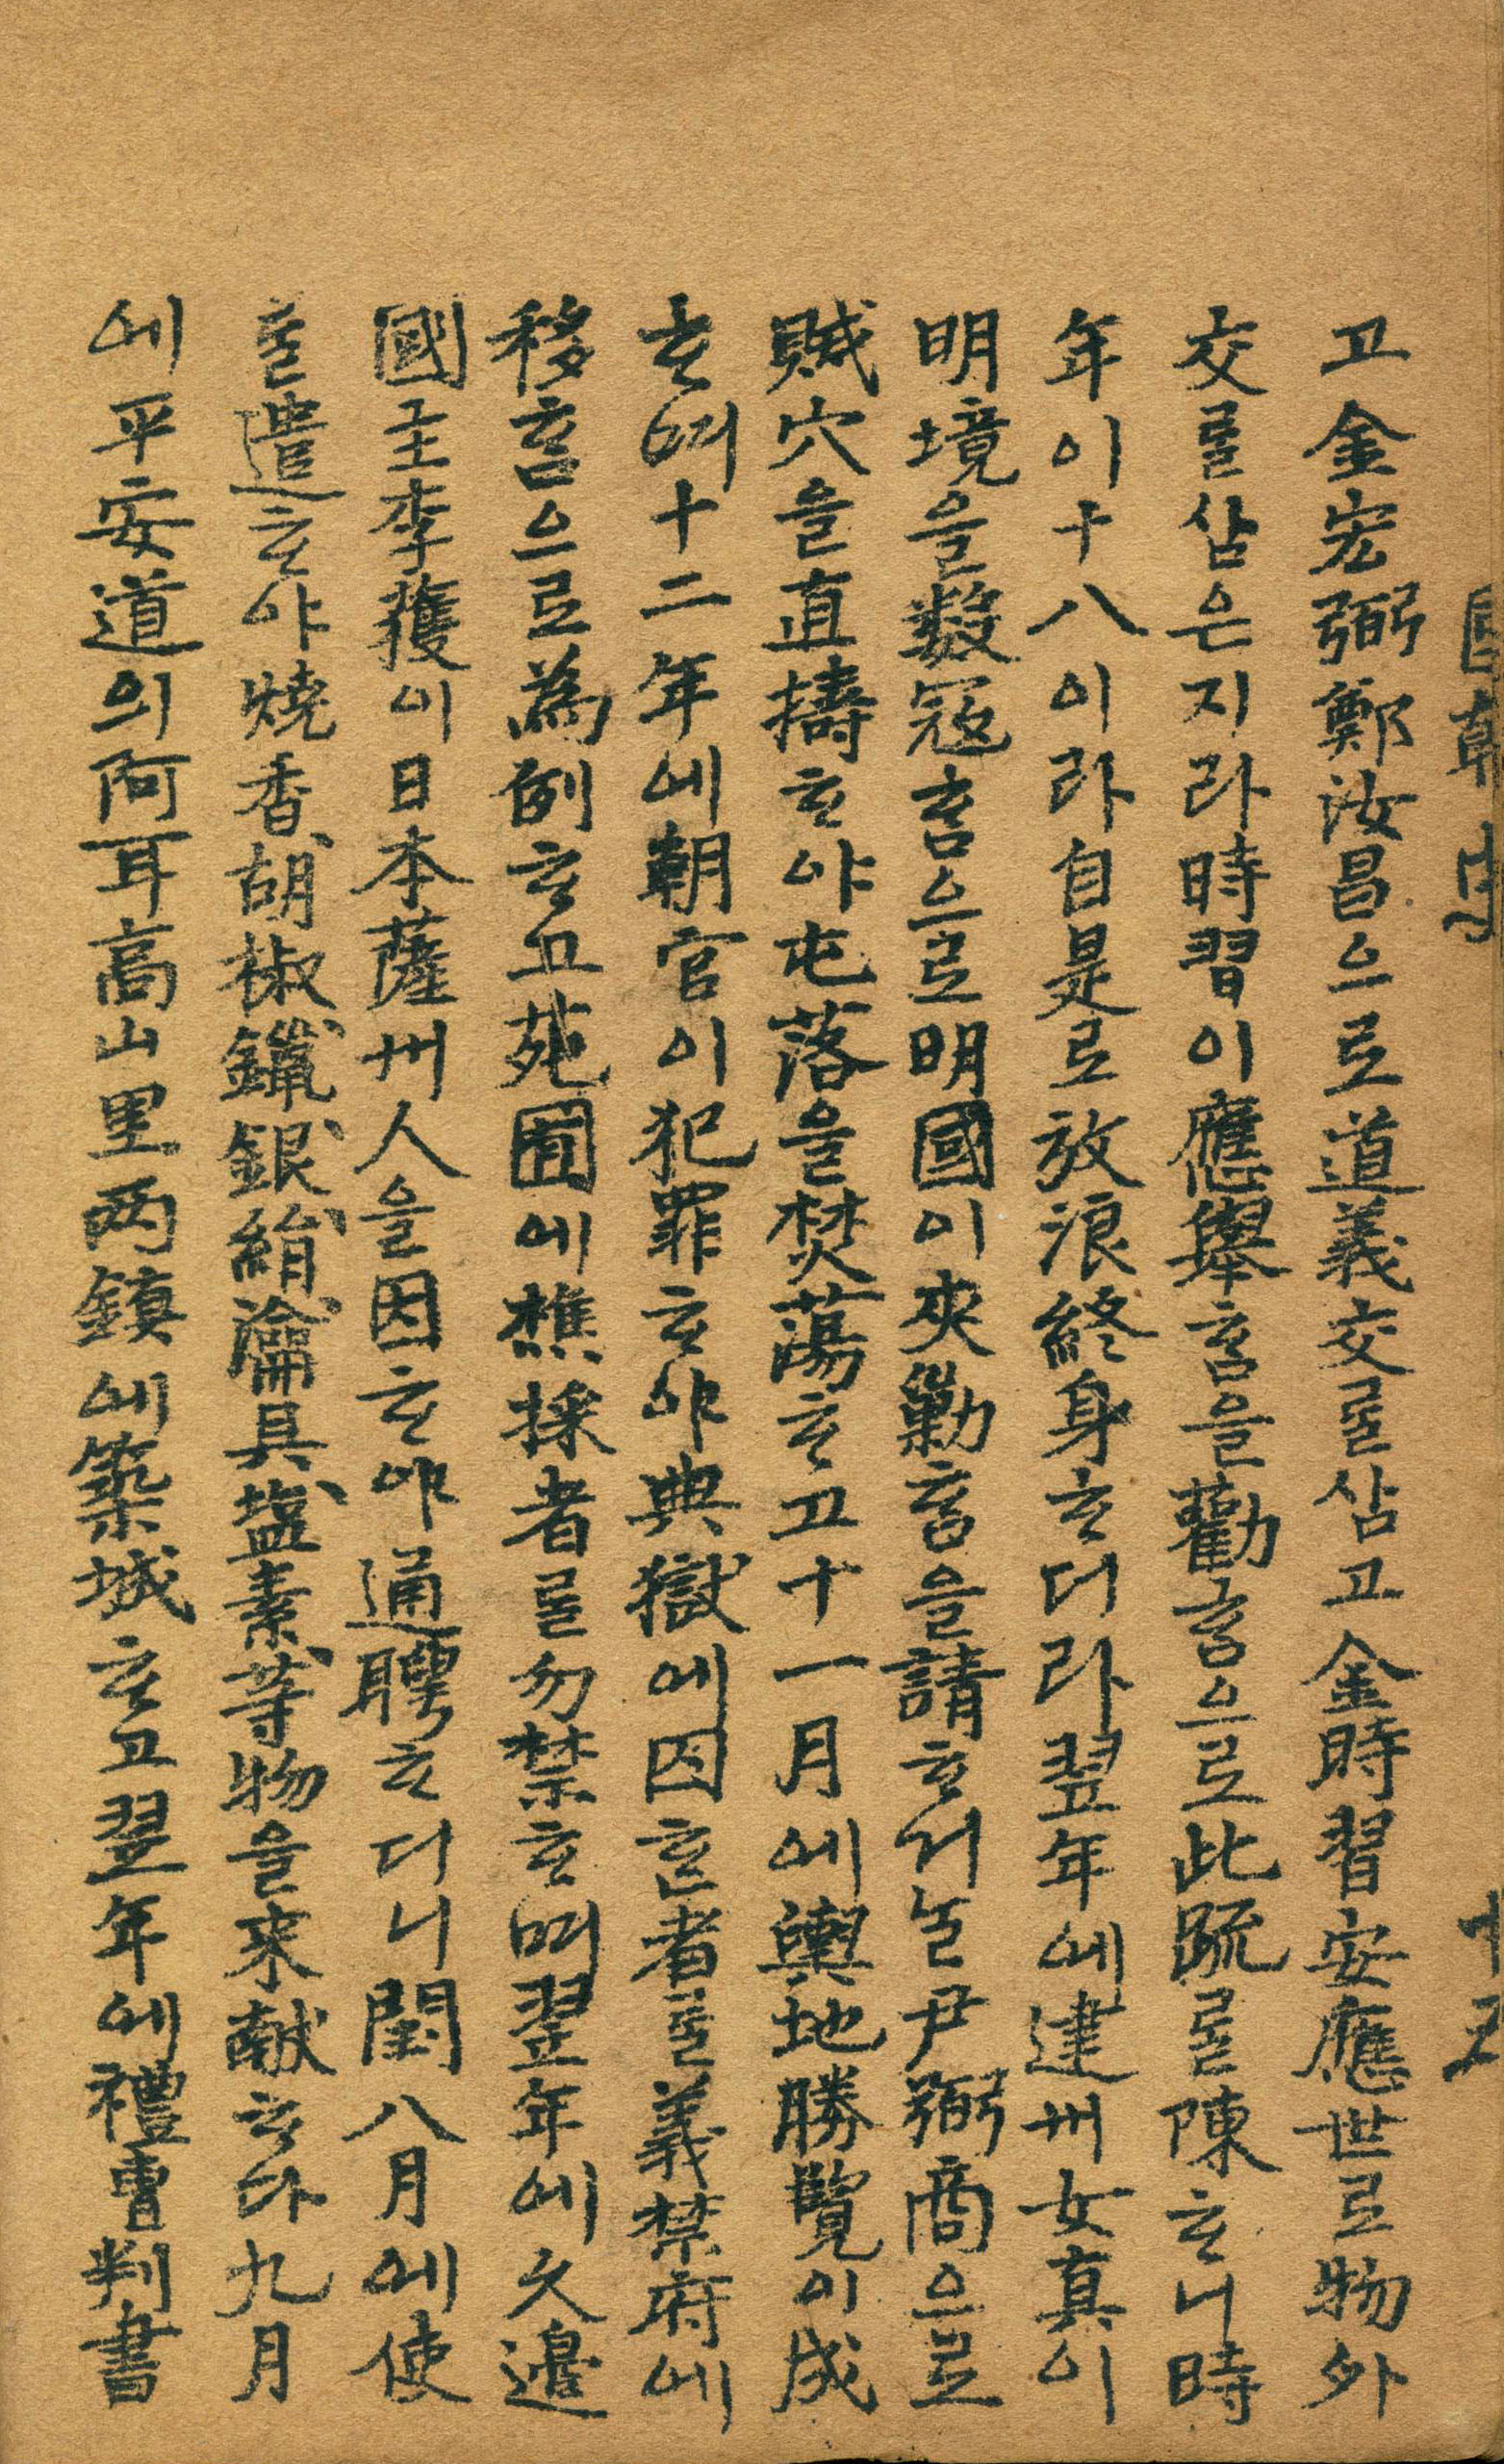 고金宏弼鄭汝昌으로道義交를삼고金時習安應世로物外
交를삼은지라時習이應擧홈을勸홈으로此疏를陳ᄒᆞ니時
年이十八이라自是로放浪終身ᄒᆞ더라翌年에建州女真이
明境을數寇홈으로明國이夾勦홈을請ᄒᆞ거늘尹弼商으로
賊穴을直擣ᄒᆞ야屯落을焚蕩ᄒᆞ고十一月에輿地勝覽이成
ᄒᆞ며十二年에朝官이犯罪ᄒᆞ야典獄에囚ᄒᆞᆫ者를義禁府에
移홈으로為例ᄒᆞ고苑囿에樵採者를勿禁ᄒᆞ며翌年에久邊
國主李獲이日本薩州人을因ᄒᆞ야通聘ᄒᆞ더니閏八月에使
를遣ᄒᆞ야燒香、胡椒、鑞、銀、絹、瀹具、盐、素、等物을来献ᄒᆞ다九月
에平安道의阿耳高山里两鎮에築城ᄒᆞ고翌年에禮曹判書
十五